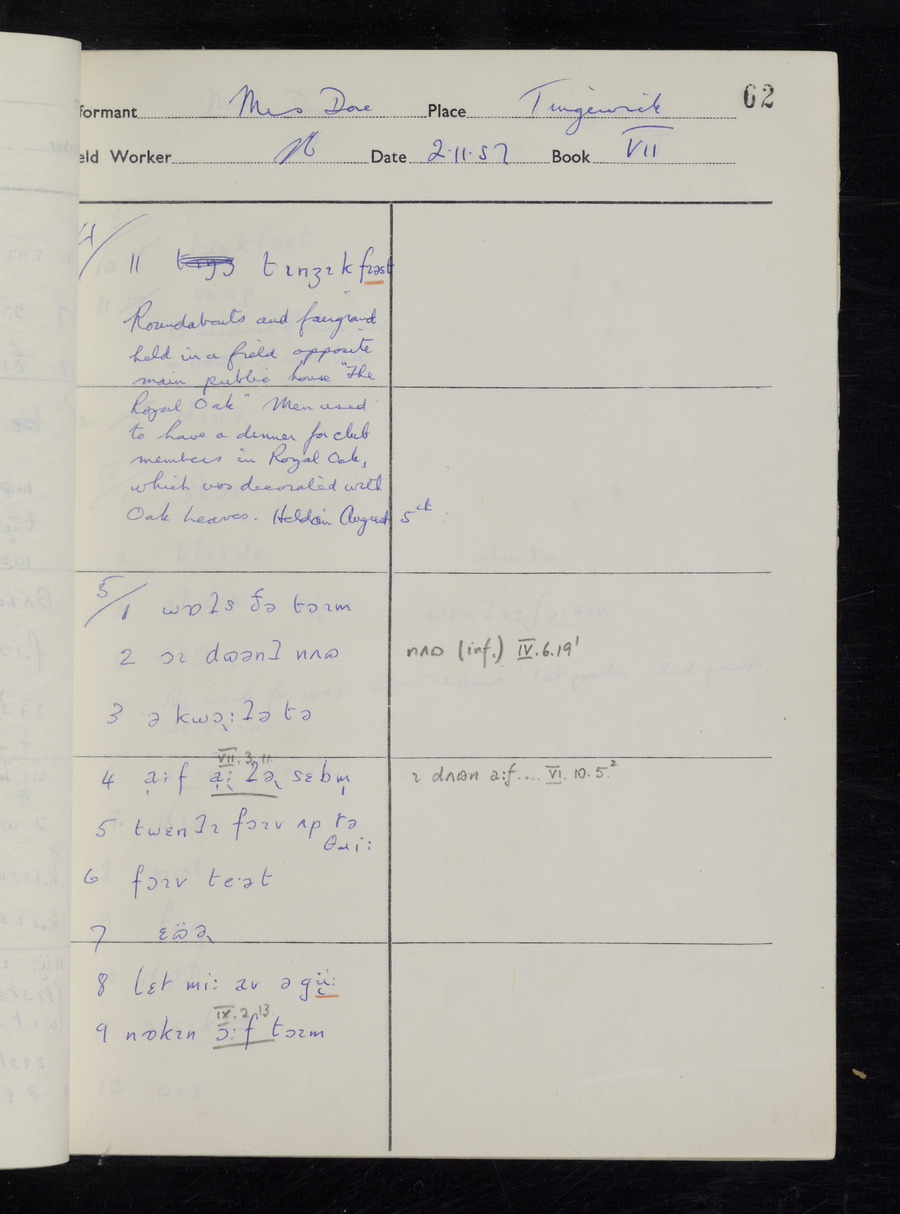 formant Mrs Doe Place Tingewick 62
eld Worker Date 2.11.57 Book VII
4/ 11 tɩnʒɩk fɪəst
Roundabouts and fairground
held in a field opposite
main public house "The
Royal Oak" Men used
to have a dinner for club
members in Royal Oak,
which was decorated with
Oak Leaves. Held on August 5th
5/ 1 wɒʔs ðə təɩm
2 ɔɩ dɷənʔ nʌɷ nʌɷ (inf.) IV.6.19¹
3 ə kwə̣:ʔə tə
VII.3.11.
4 ạ:f ạ:ʔə̣ sɛbm̩ ɩ dʌɷn a:f.... VI.10.5.²
5 twɛnʔɩ fɔɩv ʌp tə
θɹi:
6 fɔɩv te·ət
7 ɛɷ̈ə̣
8 lɛt mi: av ə gü:
IX.2.13.
9 nɒkɩn ɔ̄:f təɩm